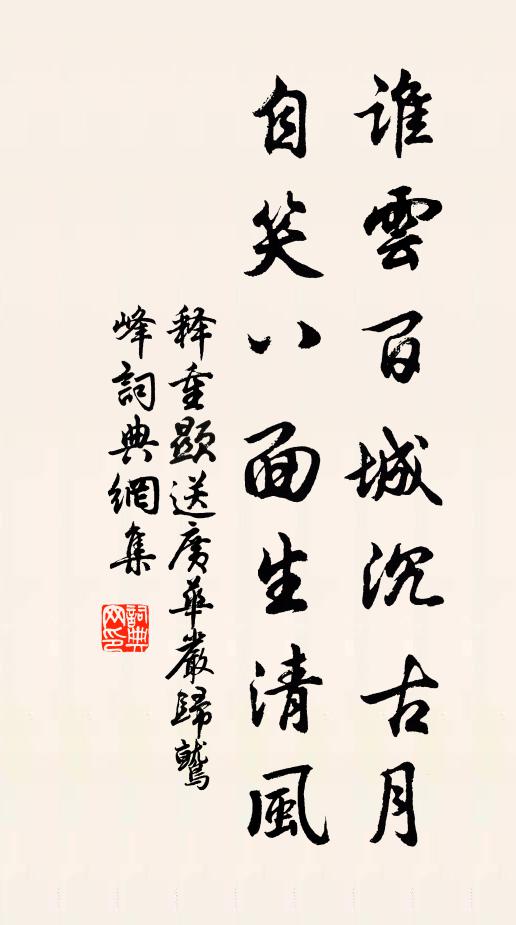 誰雲百城沉古月
自笑八面生清風
释重顯送廣華嚴歸鷲
峰詞典網集
詞典
网印